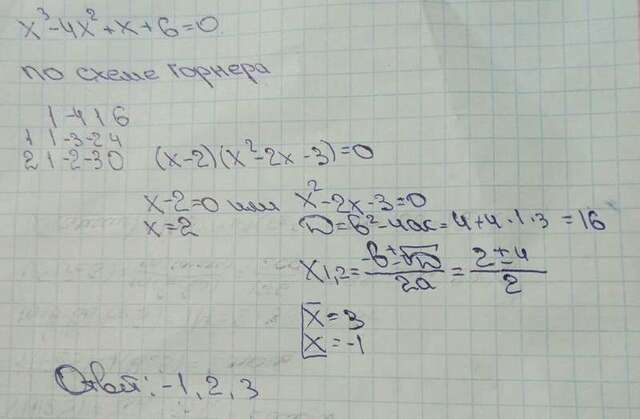 x³-4x²+x+6=0
по схеме Горнера
1 -4 1 6
1 1 -3 -2 4
2 1 -2 -3 0 (x-2)(x²-2x-3)=0
x-2=0 или x²-2x-3=0
x=2 D=b²-4ac=4+4·1·3=16
x1,2=(-b±√D)/2a=(2±4)/2
x=3
x=-1
Ответ: -1, 2, 3